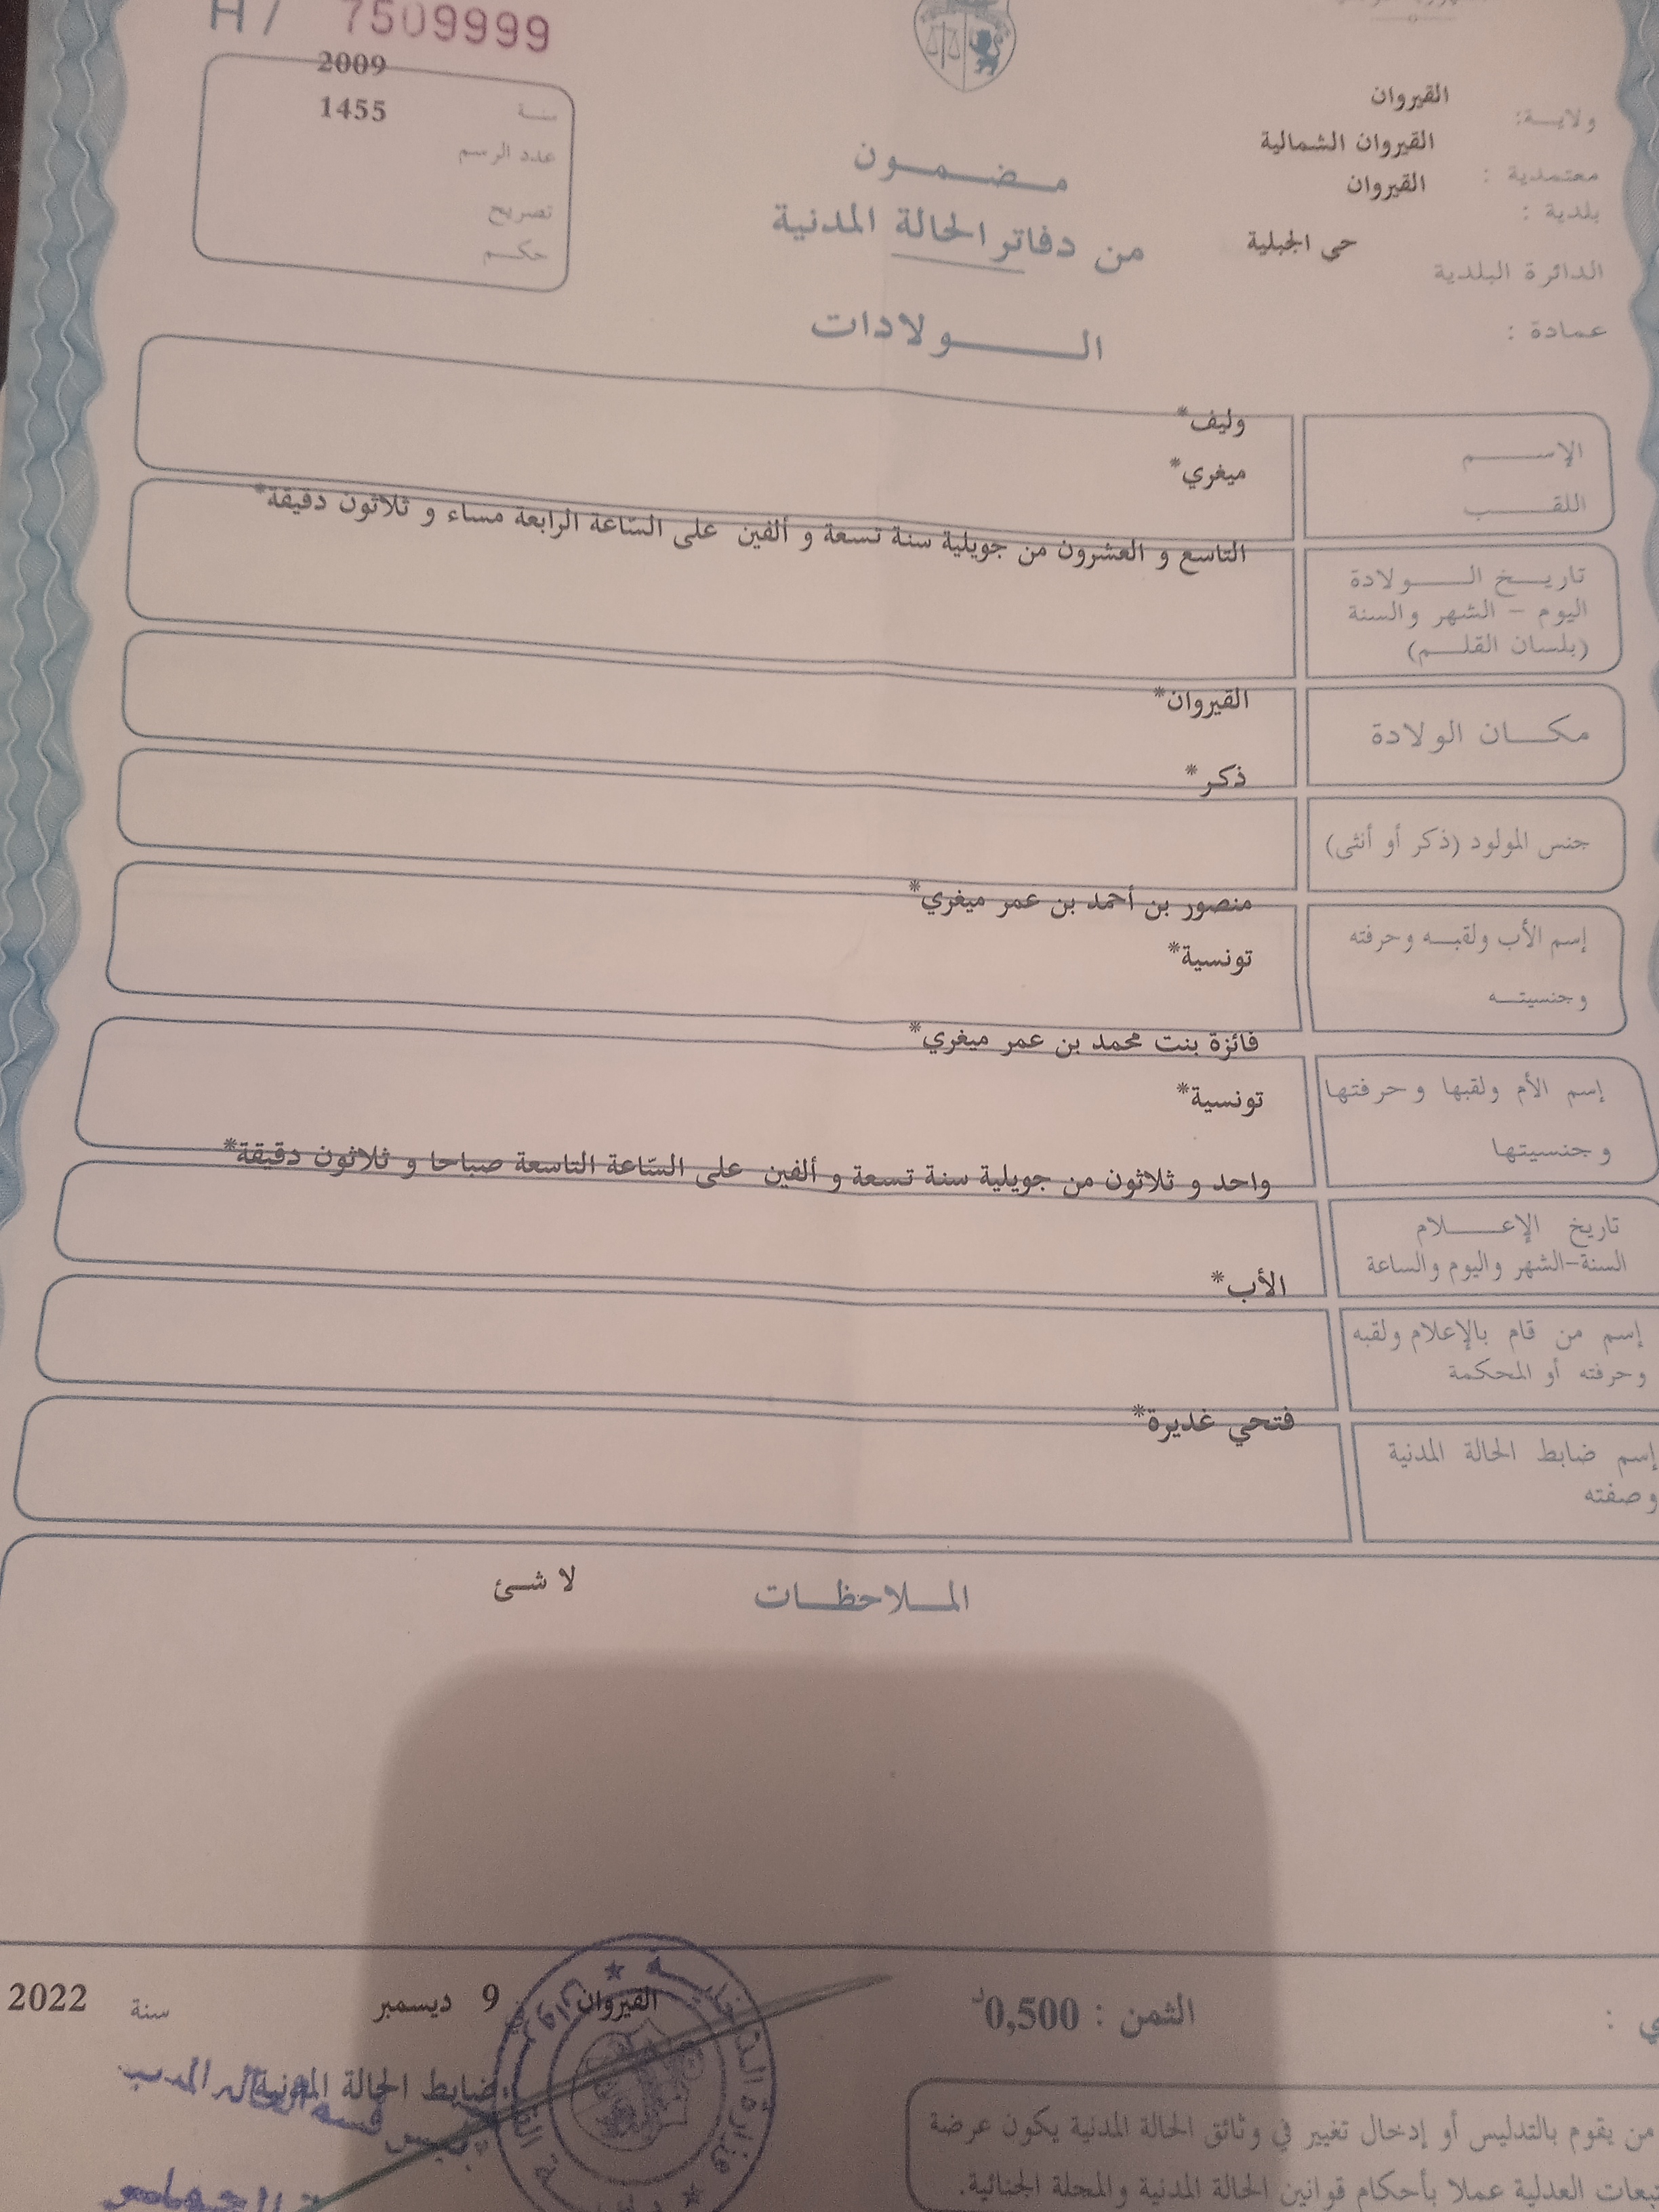 H/ 7509999
ولاية: القيروان
معتمدية : القيروان الشمالية
بلدية : القيروان
الدائرة البلدية حي الجبلية
عمادة :
سنة 2009
عدد الرسم 1455
تصريح
حكم
مضمون
من دفاتر الحالة المدنية
الولادات
الإسم وليف*
اللقب ميغري*
تاريخ الولادة
اليوم - الشهر والسنة
(بلسان القلم)
التاسع و العشرون من جويلية سنة تسعة و ألفين على السّاعة الرابعة مساء و ثلاثون دقيقة*
مكان الولادة القيروان*
جنس المولود (ذكر أو أنثى) ذكر*
إسم الأب ولقبه وحرفته منصور بن أحمد بن عمر ميغري*
وجنسيته تونسية*
إسم الأم ولقبها وحرفتها فائزة بنت محمد بن عمر ميغري*
وجنسيتها تونسية*
تاريخ الإعلام
السنة-الشهر واليوم والساعة
واحد و ثلاثون من جويلية سنة تسعة و ألفين على السّاعة التاسعة صباحا و ثلاثون دقيقة*
إسم من قام بالإعلام ولقبه
وحرفته أو المحكمة
الأب*
إسم ضابط الحالة المدنية
وصفته
فتحي غديرة*
الملاحظات لا شئ
الثمن : 0,500د
القيروان 9 ديسمبر سنة 2022
ضابط الحالة المدنية
من يقوم بالتدليس أو إدخال تغيير في وثائق الحالة المدنية يكون عرضة
العدلية عملا بأحكام قوانين الحالة المدنية والمجلة الجنائية.